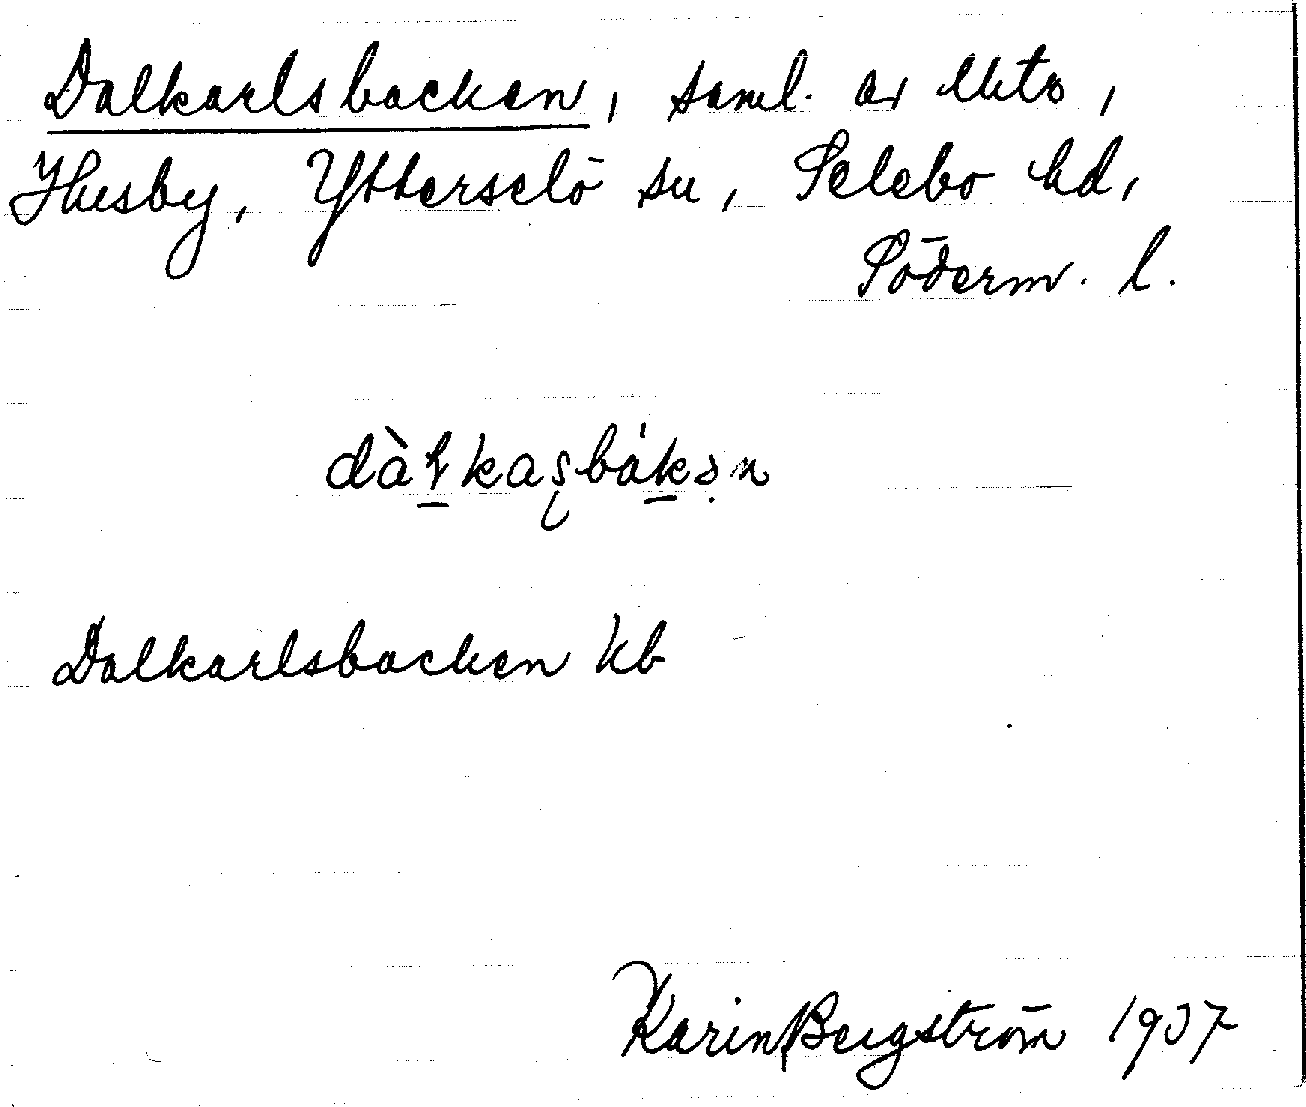 Dalkarlsbacken, saml. av lhtr,
Husby, Ytterselö sn, Selebo hd,
Söderm. l.
dàłkaʂbákən
Dalkarlsbacken kb
Karin Bergström 1937